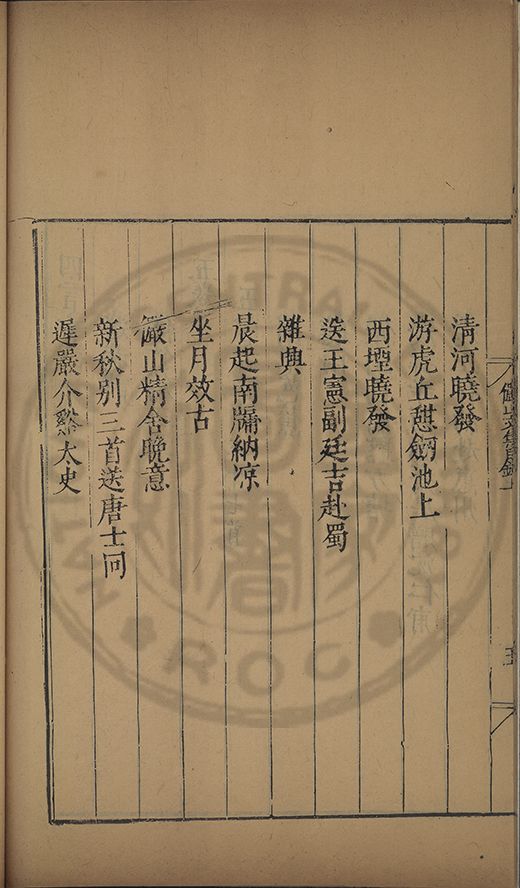 清河曉發
游虎丘憇劔池上
西堽曉發
送王憲副廷吉赴蜀
雜興
晨起南牗納凉
坐月效古
儼山精舍晚意
新秋别三首送唐士冋
遲嚴介谿太史
儼山文集目錄上
五
CENTRAL
ROC